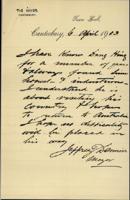 Town Hall,
Canterbury, 6 April 1903
I have known Ding Hing
for a number of years
& always found him
honest & industrious
I understand he is
about visiting his
country & hopes
to return to Australia
I hope no difficulty
will be placed in
his way
Mayor